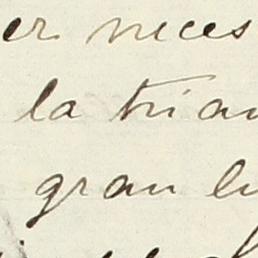 er neces
la trian
gran lu